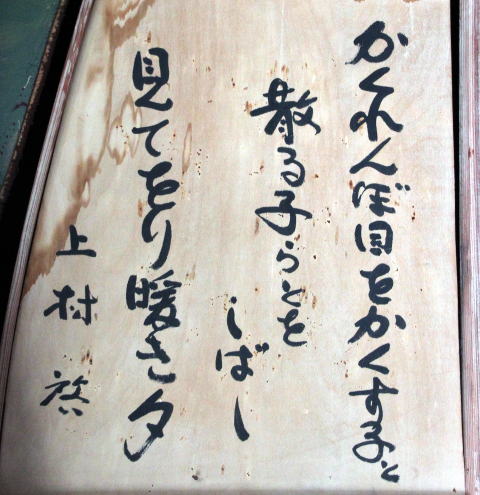 かくれんぼ目をかくす子と
散る子らとを
しばし
見てをり暖き夕
上村